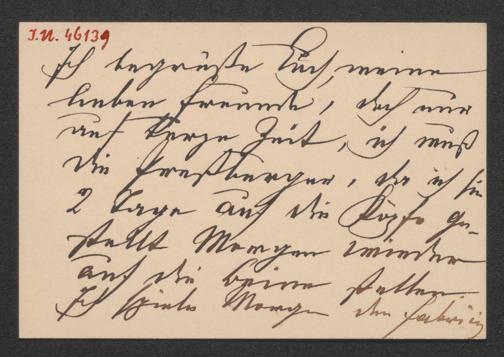 I.N. 46139
Ich begrüße Euch, meine
lieben Freunde, doch nur
auf kurze Zeit, ich muß
die Preßburger, da ich sie
2 Tage auf die Köpfe ge-
stellt Morgen wieder
auf die Beine stellen
Ich spiele Morgen den Fabrizi